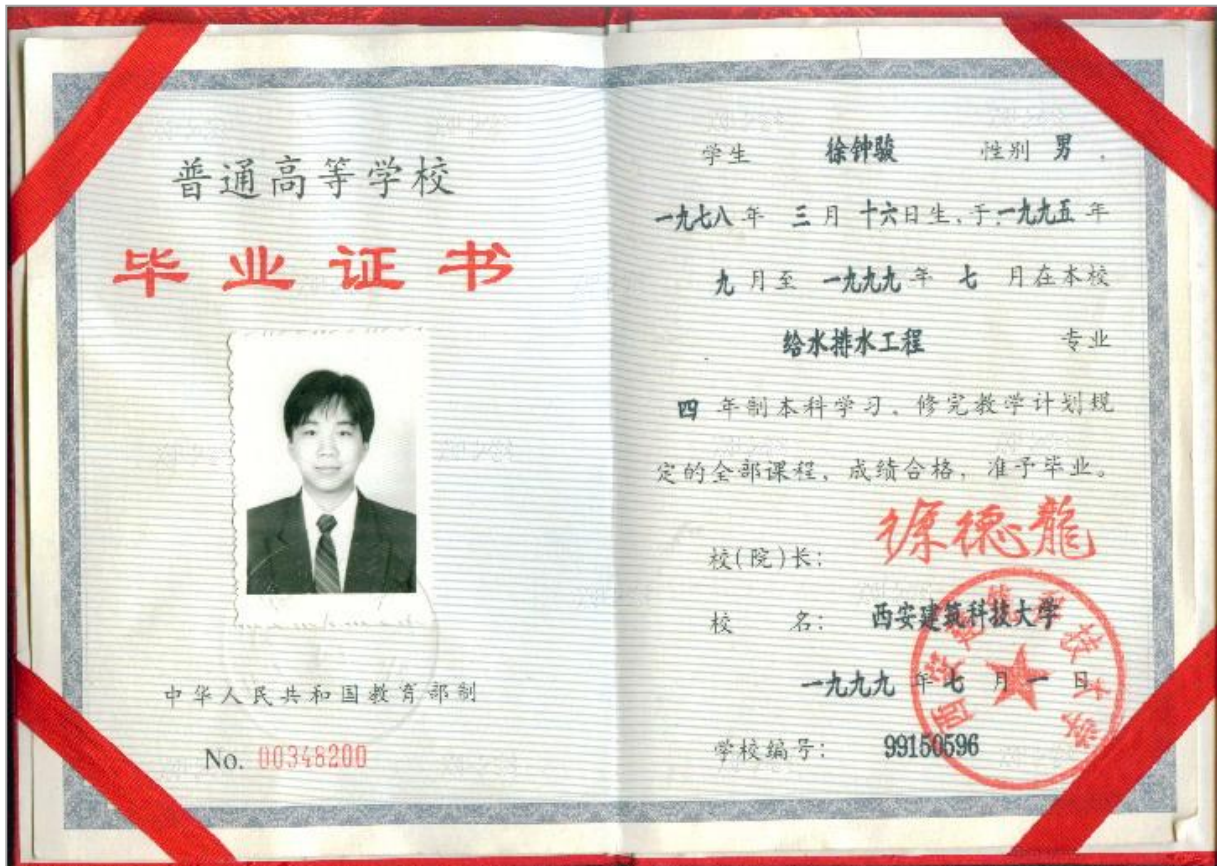 普通高等学校
毕业证书
中华人民共和国教育部制
No. 00348200
学生 徐钟骏 性别 男,
一九七八年 三月 十六日生,于一九九五年
九月至 一九九九年 七 月在本校
给水排水工程 专业
四 年制本科学习,修完教学计划规
定的全部课程,成绩合格,准予毕业。
校(院)长: 徐德龍
校 名: 西安建筑科技大学
一九九九 年 七 月 一 日
学校编号: 99150596
西安建筑科技大学